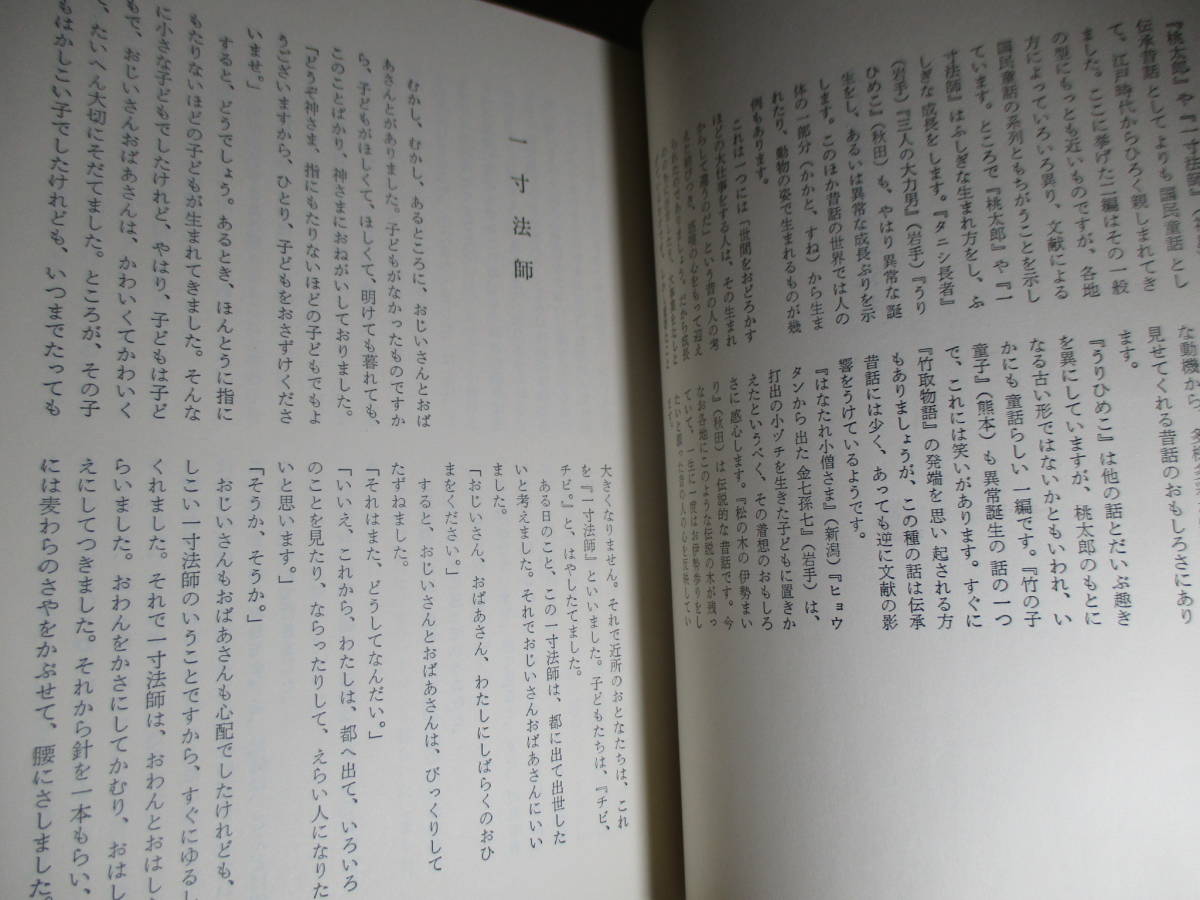 『桃太郎』や『一寸法師』
伝承昔話としてよりも国民童話とし
て。江戸時代からひろく親しまれてき
ました。ここに挙げた二編はその一般
の型にもっとも近いものですが、各地
方によっていろいろ異り、文献による
国民童話の系列ともちがうことを示し
ています。ところで『桃太郎』や『一
寸法師』はふしぎな生まれ方をし、ふ
しぎな成長をします。『タニシ長者』
（岩手）『三人の大力男』（岩手）『うり
ひめこ』（秋田）も、やはり異常な誕
生をし、あるいは異常な成長ぶりを示
します。このほか昔話の世界では人の
体の一部分（かかと、すね）から生ま
れたり、動物の姿で生まれるものが幾
例もあります。
これは一つには「世間をおどろかす
ほどの大仕事をする人は、その生まれ
からして違うのだ」という昔の人の考
えと結びつき、感嘆の心をもって迎え
な動機から、
見せてくれる昔話のおもしろさにあり
ます。
『うりひめこ』は他の話とだいぶ趣き
を異にしていますが、桃太郎のもとに
なる古い形ではないかともいわれ、い
かにも童話らしい一編です。『竹の子
童子』（熊本）も異常誕生の話の一つ
で、これには笑いがあります。すぐに
『竹取物語』の発端を思い起される方
もありましょうが、この種の話は伝承
昔話には少く、あっても逆に文献の影
響をうけているようです。
『はなたれ小僧さま』（新潟）『ヒョウ
タンから出た金七孫七』（岩手）は、
打出の小ヅチを生きた子どもに置きか
えたというべく、その着想のおもしろ
さに感心します。『松の木の伊勢まい
り』（秋田）は伝説的な昔話です。今
なお各地にこのような伝説の木が残っ
ていて、一生に一度はお伊勢参りをし
たいと願った昔の人の心を反映してい
ます。
一寸法師
むかし、むかし、あるところに、おじいさんとおば
あさんとがありました。子どもがなかったものですか
ら、子どもがほしくて、ほしくて、明けても暮れても、
このことばかり、神さまにおねがいしておりました。
「どうぞ神さま、指にもたりないほどの子どもでもよ
うございますから、ひとり、子どもをおさずけくださ
いませ。」
すると、どうでしょう。あるとき、ほんとうに指に
もたりないほどの子どもが生まれてきました。そんな
に小さな子どもでしたけれど、やはり、子どもは子ど
もで、おじいさんおばあさんは、かわいくてかわいく
、たいへん大切にそだてました。ところが、その子
もはかしこい子でしたけれども、いつまでたっても
大きくなりません。それで近所のおとなたちは、これ
を『一寸法師』といいました。子どもたちは、『チビ、
チビ。』と、はやしたてました。
ある日のこと、この一寸法師は、都に出て出世した
いと考えました。それでおじいさんおばあさんにいい
ました。
「おじいさん、おばあさん、わたしにしばらくのおひ
まをください。」
すると、おじいさんとおばあさんは、びっくりして
たずねました。
「それはまた、どうしてなんだい。」
「いいえ、これから、わたしは、都へ出て、いろいろ
のことを見たり、ならったりして、えらい人になりた
いと思います。」
「そうか、そうか。」
おじいさんもおばあさんも心配でしたけれども、
しこい一寸法師のいうことですから、すぐにゆるし
くれました。それで一寸法師は、おわんとおはし
らいました。おわんをかさにしてかむり、おはし
えにしてつきました。それから針を一本もらい、
には麦わらのさやをかぶせて、腰にさしました。